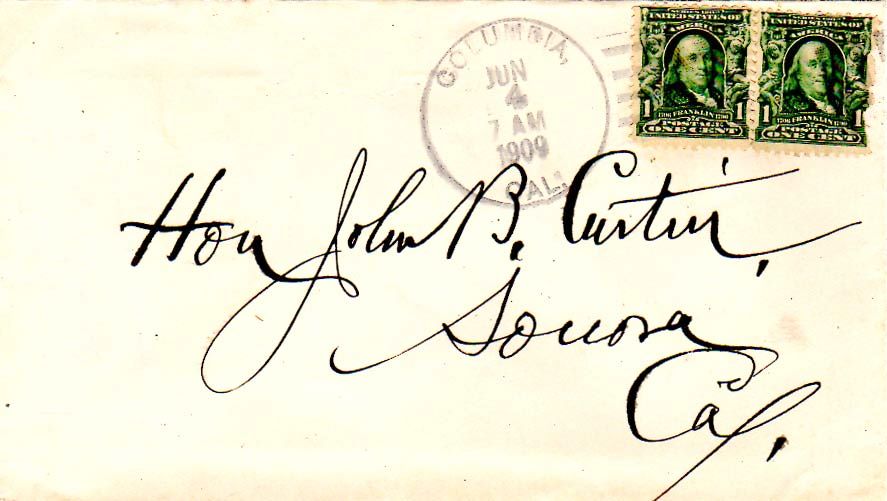 COLUMBIA,
JUN
4
7 AM
1909
CAL.
SERIES 1902
UNITED STATES OF
AMERICA
1 1706 FRANKLIN 1790 1
POSTAGE
ONE CENT
SERIES 1902
UNITED STATES OF
AMERICA
1 1706 FRANKLIN 1790 1
POSTAGE
ONE CENT
Hon John B. Curtin,
Sonora
Cal.